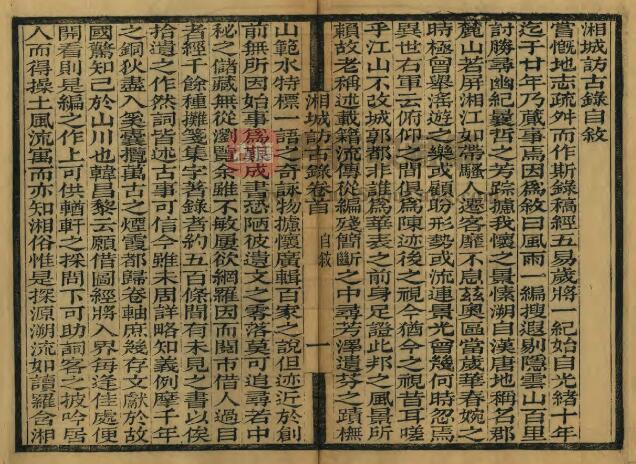 湘城訪古錄自敘
嘗慨地志疏舛而作斯錄稿經五易歲將一紀始自光緒十年
迄于廿年乃蕆事焉因爲敘曰風雨一編搜遐剔隱雲山百里
討勝尋幽紀曩哲之芳踪攄我懷之景愫溯自漢唐地稱名郡
麓山若屏湘江如帶騷人遷客靡不息茲奧區當歲華春婉之
時極曾舉滛遊之樂或顧盼形勢或流連景光曾幾何時忽焉
異世右軍云俯仰之間俱爲陳迹後之視今猶今之視昔耳嗟
乎江山不改城郭都非誰爲華表之前身足證此邦之風景所
賴故老稱述載籍流傳從編殘簡斷之中尋芳澤遺芬之蹟橅
湘城訪古錄卷首
自敘
一
山範水特標一語之奇詠物攄懷廣輯百家之說但迹近於創
前無所因始事爲難成書恐陋彼遺文之零落莫可追尋若中
秘之儲藏無從瀏覽余雖不敏屢欲網羅因而閱市借人過目
者經千餘種攤箋集字著錄者約五百條間有未見之書以俟
拾遺之作然詞皆述古事可信今雖未周詳略知義例摩千年
之銅狄盡入奚囊攬萬古之煙霞都歸卷軸庶幾存文獻於故
國驚知己於山川也韓昌黎云願借圖經將入界每逢佳處便
開看則是編之作上可供輶軒之採問下可助詞客之披吟居
人而得操土風流寓而亦知湘俗惟是探源溯流如讀羅含湘